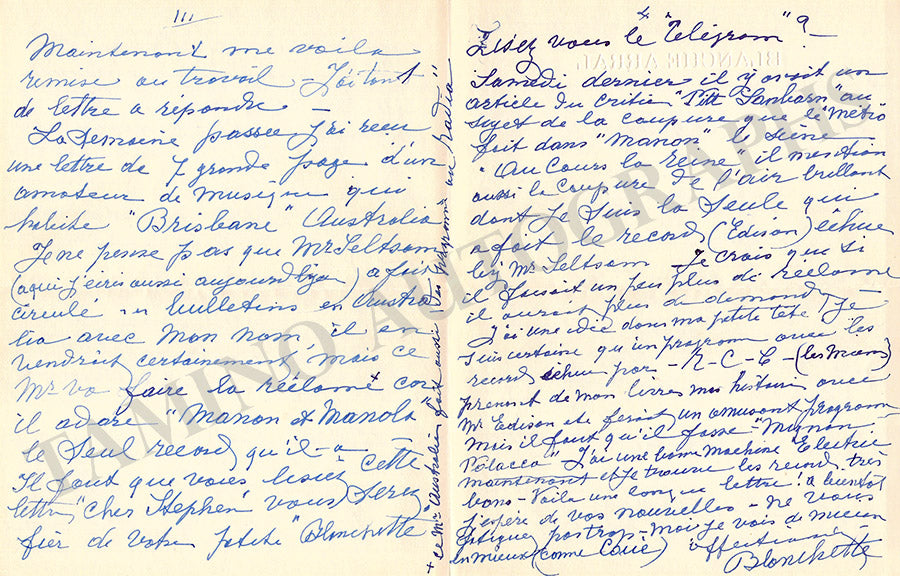 III
Maintenant me voila
remise au travail – J'ai tant
de lettre a répondre –
La Semaine passée, j'ai reçu
une lettre de 7 grande page d'un
amateur de musique qui
habite "Brisbane" Australia
Je ne pense pas que Mr Seltsam
(a qui j'écris aussi aujourd'hui) a fait
circulé bulletins en Austra
lia avec mon nom il en
vendrait certainement, mais ce
Mr va faire la réclame car
il adore "Manon et Manola"
le seul record qu'il a –
Il faut que vous lisiez cette
lettre "cher Stephén" vous serez
fier de votre petite "Blanchette"
+ ce Mr Australien fait aussi des programs au Radio"
4
Lisez vous le "Telegram"? –
BLANCHE ARRAL
Samedi dernier il y avait un
article du critic "Pitt Sanborn" au
sujet de la coupure que le "Metro"
fait dans "Manon" le scène
"Au Cours la Reine" il mention
aussi la coupure de l'air brillant
dont je suis la seule qui
a fait le record (Edison)
by Mr Seltsam – Je crois que si
il faisait un peu plus de reclame
il aurait plus de demande – Je
J'ai une idée dans ma petite tête, Je
suis certaine qu'un program avec les
record par – (les miens)
prenant de mon livre mes histoires avec
Mr Edison etc ferait un amusant program
Mais il faut qu'il fasse – "Mignon
Polacca" J'ai une bonne machine "Electric"
maintenant et je trouve les record très
bons – Voila une longue lettre! a bientot
j'espère de vos nouvelles – ne vous
fatiguez pas trop – Moi je vais de mieux
en mieux (comme Coué) affectionée
Blanchette
TAMINO AUTOGRAPHS